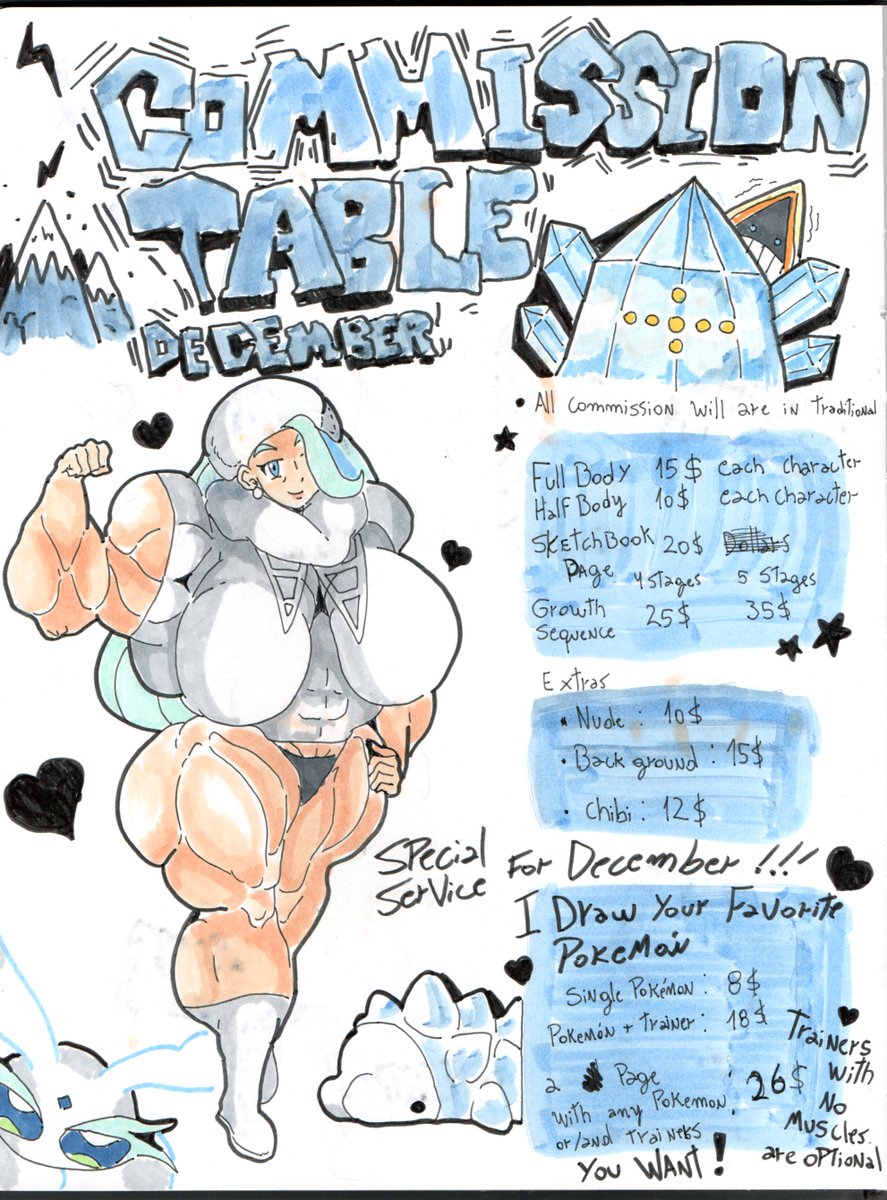 COMMISSION
TABLE
DECEMBER
• All commission will are in traditional
Full Body 15$ each character
Half Body 10$ each character
Sketchbook Page 20$
4 stages 5 stages
Growth Sequence 25$ 35$
Extras
• Nude: 10$
• Back ground: 15$
• Chibi: 12$
Special Service For December!!!
I Draw Your Favorite
Pokemón
Single Pokémon: 8$
Pokemón + Trainer: 18$
a Page
with any Pokemon: 26$
or/and trainers
You Want!
Trainers
with
No
Muscles
are optional